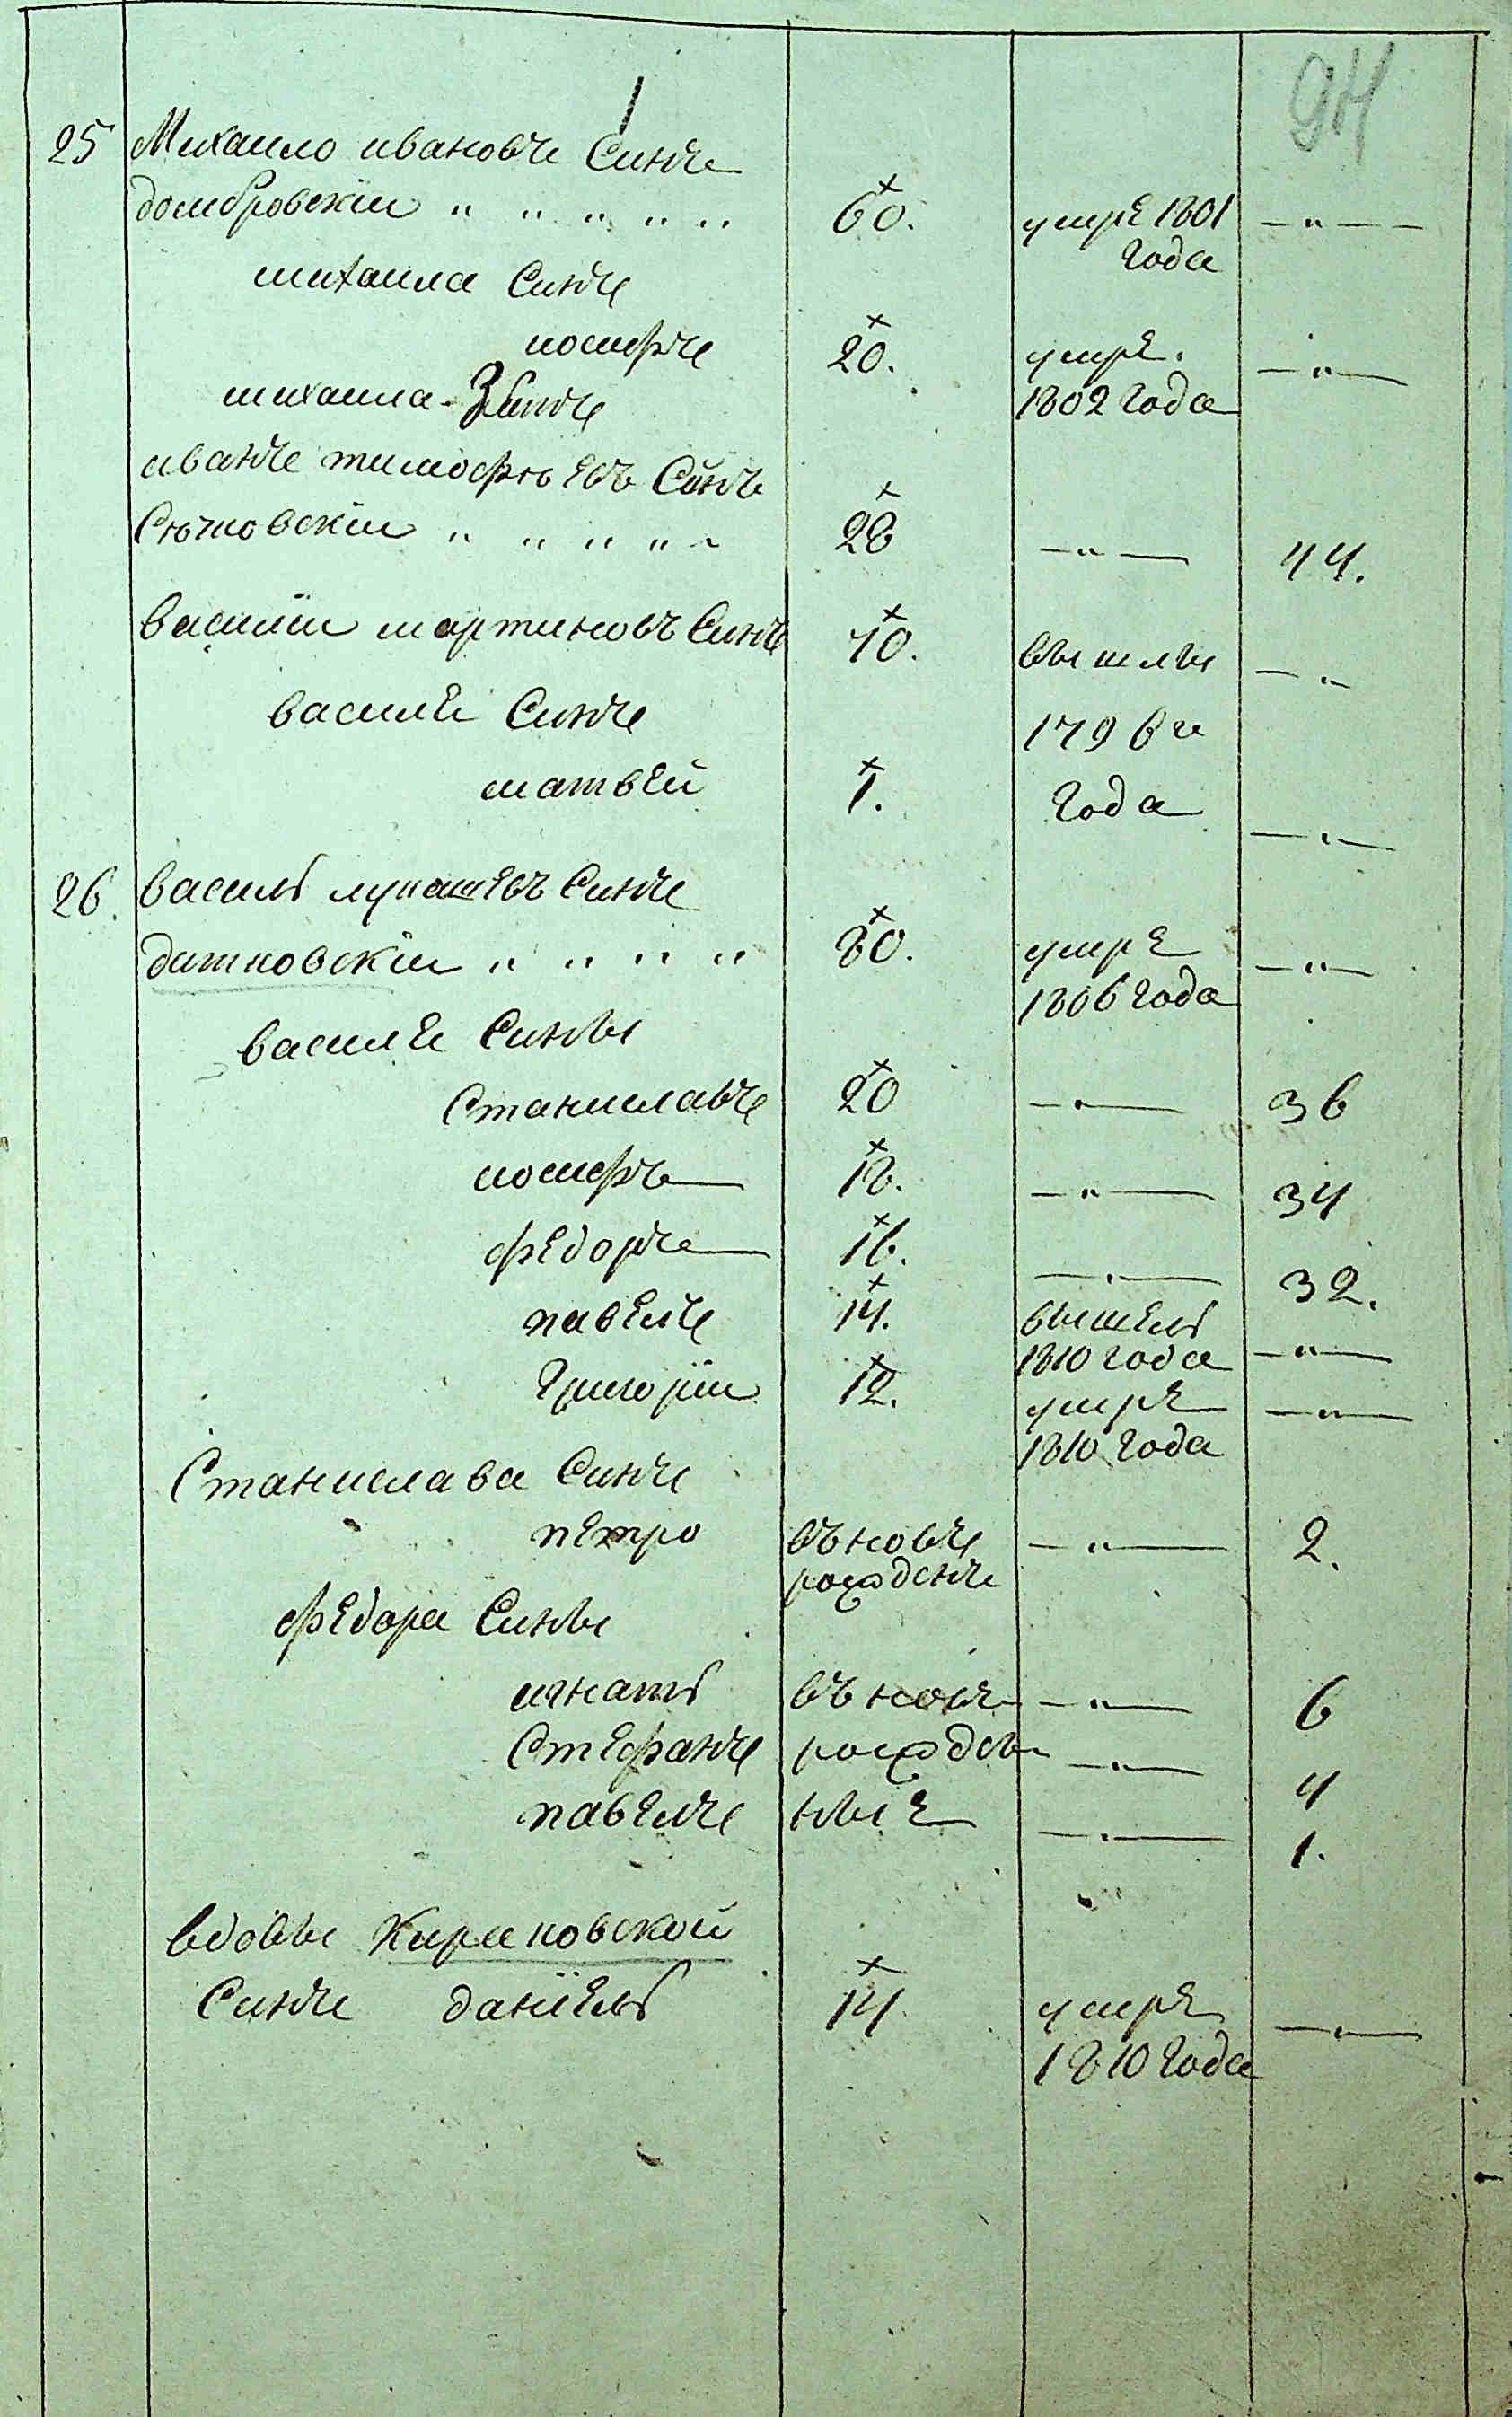 25 Михаило ивановъ Синъ
домбровскіи " " " " " 60. умре 1801 — " — —
года
михаила Синъ
иосифъ 20. умре. — " —
михаила Зять 1802 года
иванъ тимофѣевъ Сынъ
" " " " " 28 — " — 44.
василіи мартиновъ Синъ 40. вышлы — " —
василя Синъ 1796 го
матвѣй 1. года — " —
26. василь лукашевъ Синъ
дитковскіи " " " " 80. умре — " —
1806 года
василя Сины
Станиславъ 20 — " — 36
иосифъ 18. — " — 34
федоръ 16. — " — 32.
павелъ 14. вышель
1810 года — " —
григоріи 12. умре — " —
1810 года
Станислава Синъ
петро въновъ — " — 2.
рожденъ
федора Сины
игнатъ въновъ — " — 6
Стефанъ рожден — " — 4
павелъ ные — " — 1.
вдовы Кираковской
Синъ даніель 14 умре — " —
1810 года